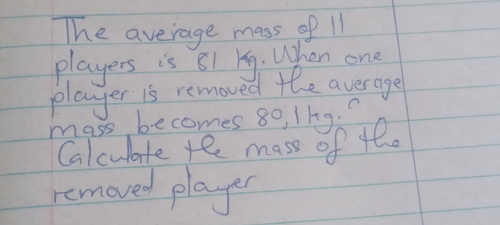 The average mass of 11
players is 81 kg. When one
player is removed the average
mass becomes 80,1kg.
Calculate the mass of the
removed player